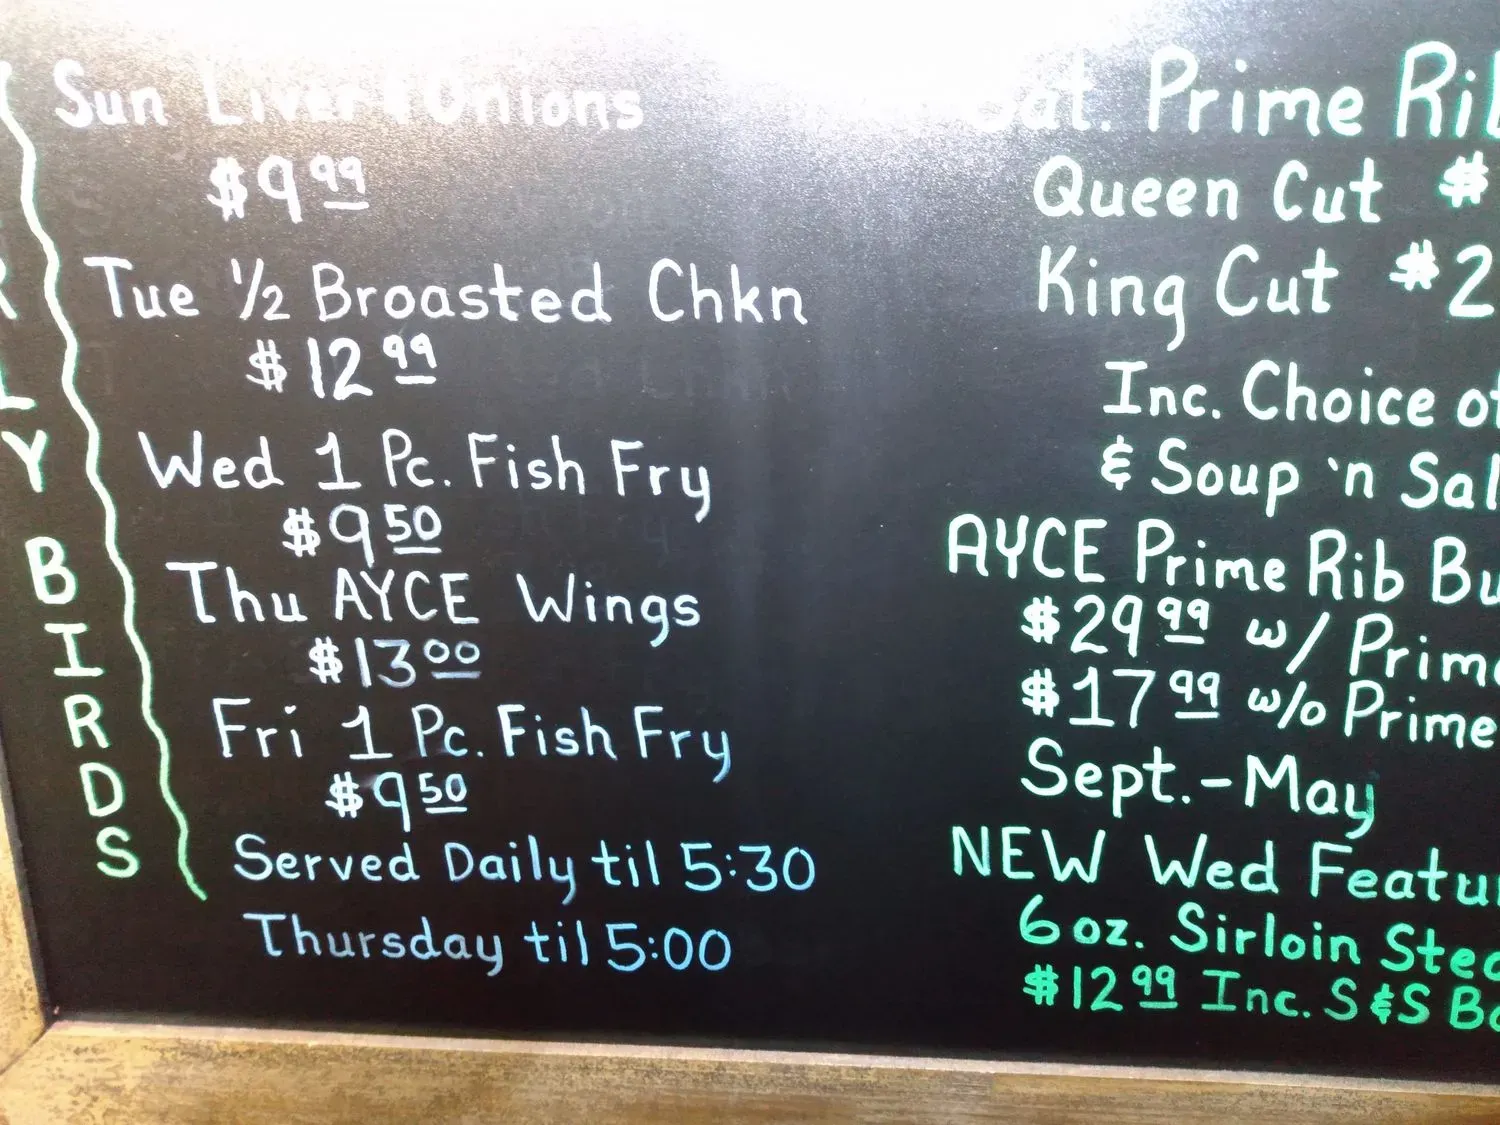 R
L
Y
B
I
R
D
S
Sun Liver & Onions
$9.99
Tue 1/2 Broasted Chkn
$12.99
Wed 1 Pc. Fish Fry
$9.50
Thu AYCE Wings
$13.00
Fri 1 Pc. Fish Fry
$9.50
Served Daily til 5:30
Thursday til 5:00
Sat. Prime Rib
Queen Cut $
King Cut $2
Inc. Choice of
& Soup 'n Sal
AYCE Prime Rib Bu
$29.99 w/ Prime
$17.99 w/o Prime
Sept.-May
NEW Wed Featur
6 oz. Sirloin Stea
$12.99 Inc. S & S Ba